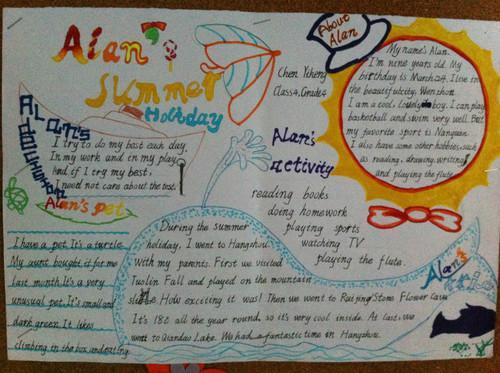 Alan's
Summer
Holiday
Chen Yiheng
Class4, Grade4
About
Alan
My name's Alan.
I'm nine years old. My
birthday is March 24. I live in
the beautiful city Wenzhou.
I am a cool boy. I can play
basketball and swim very well. But
my favorite sport is Nanquan.
I also have some other hobbies, such
as reading, drawing, writing
and playing the flute.
Alan's
I try to do my best each day,
In my work and in my play,
And if I try my best,
I need not care about the rest.
Alan's
activity
reading books
doing homework
playing sports
watching TV
playing the flute.
Alan's pet
I have a pet. It's a turtle.
My aunt bought it for me
last month. It's a very
unusual pet. It's small and
dark green. It likes
climbing in the box and
Alan's
During the summer
holiday, I went to Hangzhou
with my parents. First we visited
Fall and played on the mountain
slide. How exciting it was! Then we went to Stone Flower Cave
It's 18℃ all the year round, so it's very cool inside. At last, we
went to Qiandao Lake. We had a fantastic time in Hangzhou.